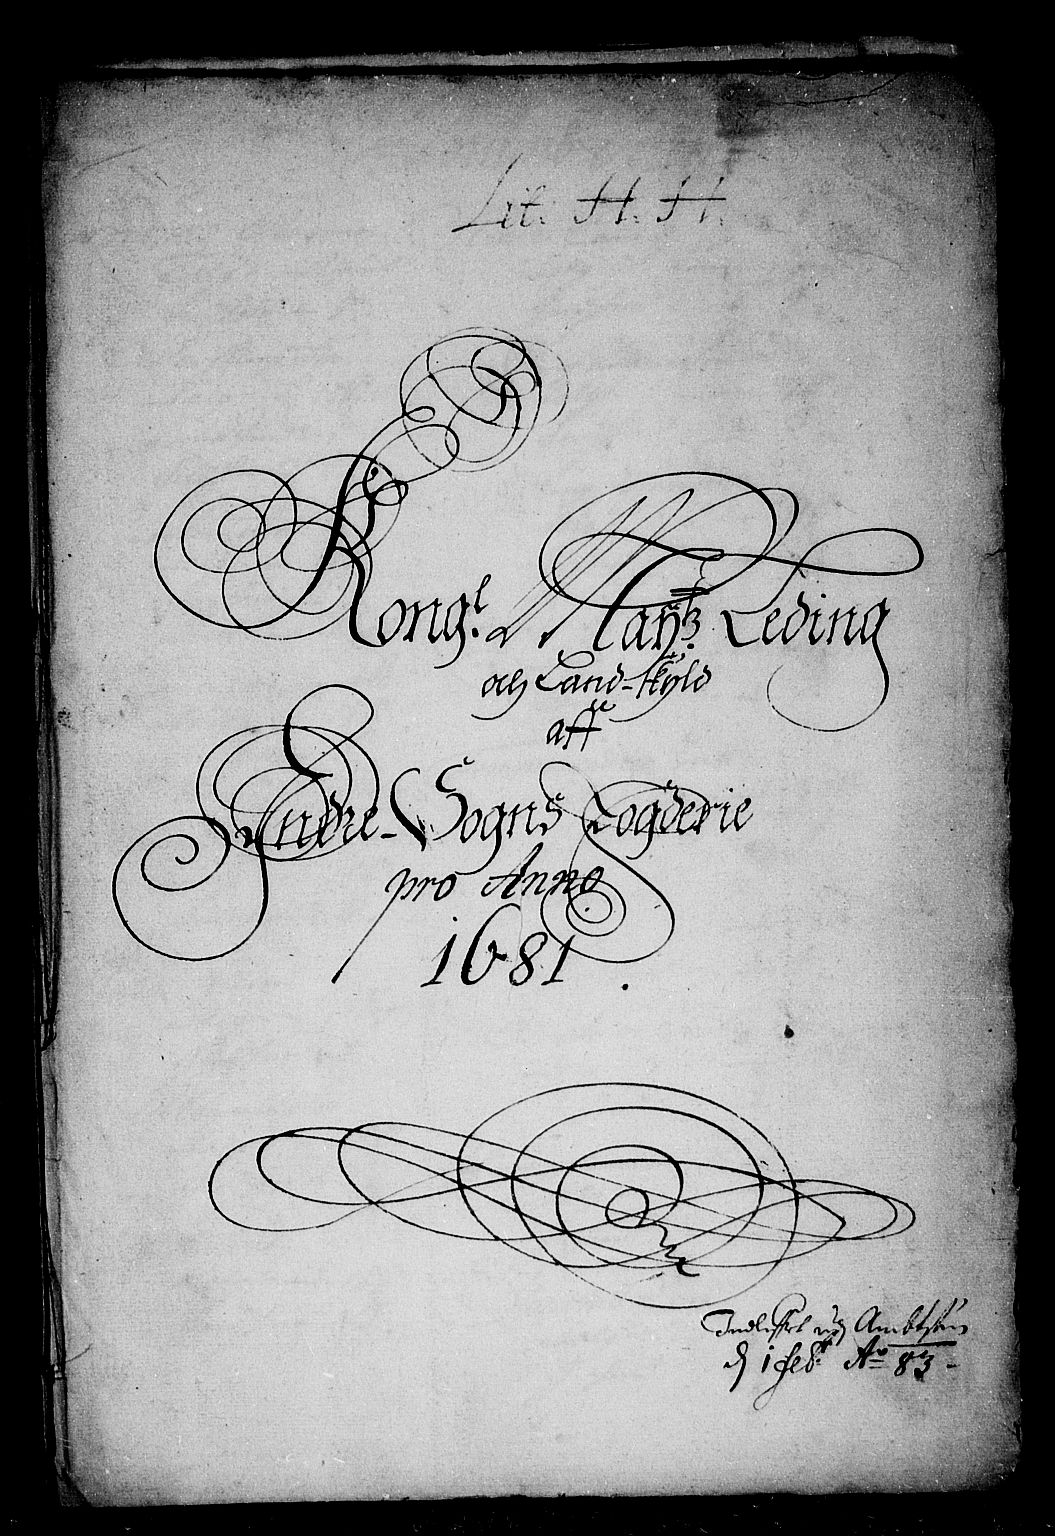 Lit. H. H.
Kongl. Mayts Leding
och Land-skyld
aff
Indre-Sogns Fogderie
pro Anno
1681.
Indlefert
d 1 Feb. Ao 83